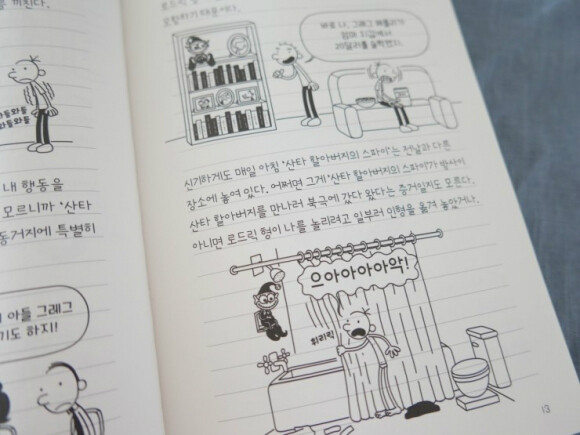 를 끼친다.
와들와들
와들와들
내 행동을
모르니까 ‘산타
동거지에 특별히
아들 그레그
기도 하지!
로드릭 형
모함하기 때문이다.
바로 나, 그레그 헤플리가
엄마 지갑에서
20달러를 슬쩍했지.
신기하게도 매일 아침 ‘산타 할아버지의 스파이’는 전날과 다른
장소에 놓여 있다. 어쩌면 그게 ‘산타 할아버지의 스파이’가 밤사이
산타 할아버지를 만나러 북극에 갔다 왔다는 증거인지도 모른다.
아니면 로드릭 형이 나를 놀리려고 일부러 인형을 옮겨 놓았거나.
으아아아아악!
휘리릭
13